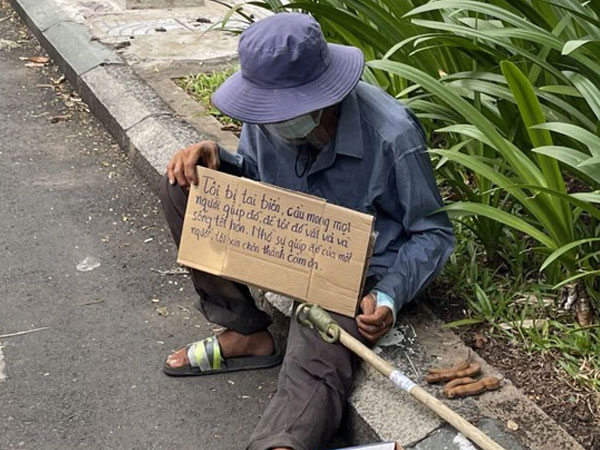 Tôi bị tai biến, cầu mong mọi
người giúp đỡ, để tôi đỡ vất vả và
sống tốt hơn. Nhờ sự giúp đỡ của mọi
người, tôi xin chân thành cảm ơn.